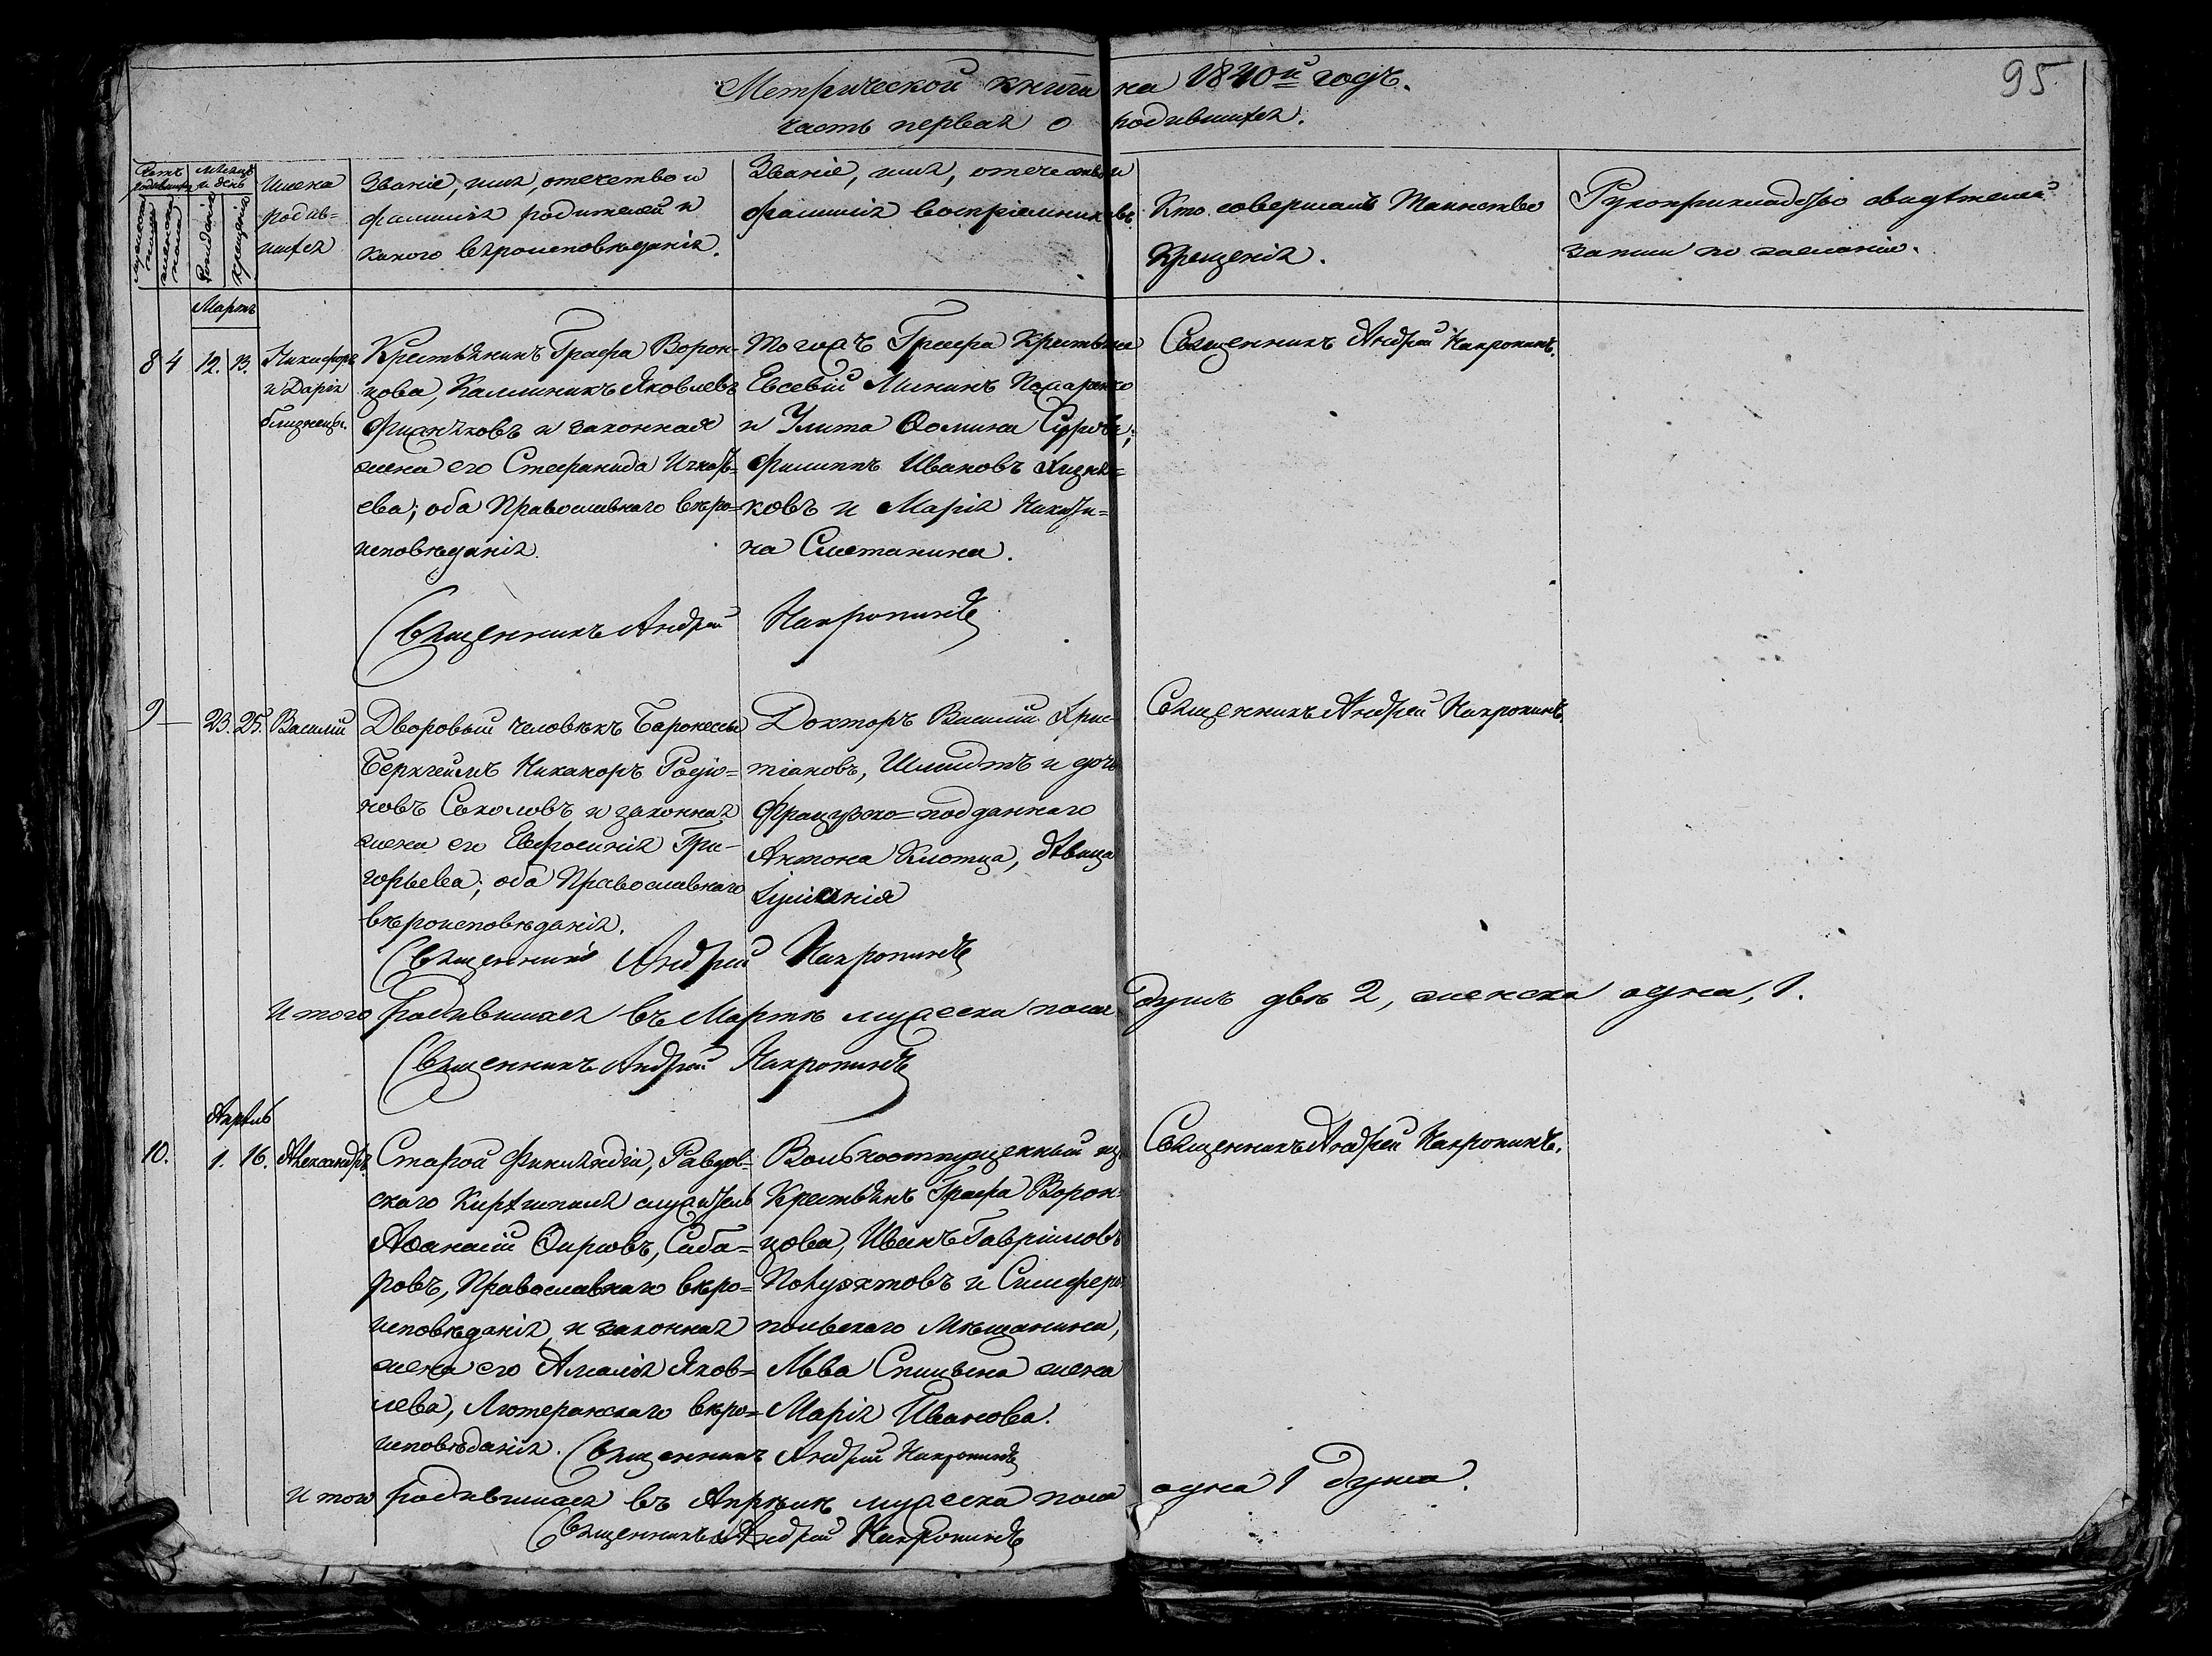 Метрической книги на 1840й годъ.
95
часть первая о родившихся.
Счетъ родившихся
мужеска пола
женска пола
Мѣсяцъ и день
Рожденія
Крещенія
Имена
родив=
шихся
Званіе, имя, отечество и
фамилія родителей и
какого вѣроисповѣданія.
Званіе, имя, отечество и
фамилія воспріемниковъ.
Кто совершалъ Таинство
Крещенія.
Рукоприкладство свидѣтелей
записи по желанію.
Мартъ
8 4 12. 13.
Никифоръ
и Дарія
близнецы.
Крестьянинъ Графа Ворон-
цова, Каллиникъ Яковлевъ
и законная
жена его Стефанида
ева; оба Православнаго вѣро-
исповѣданія.
Того жъ Графа Крестьяне
Евсевій Мининъ Понаренко
и Улита Ѳомина
Филиппъ Ивановъ
ковъ и Марія Никити=
на Сметанина.
Священникъ Андрей Накропинъ.
Священникъ Андрей Накропинъ
9 — 23. 25. Василій
Дворовый человѣкъ Баронессы
Беркгеймъ Никаноръ Родіо=
новъ Соколовъ и законная
жена его Евфросинія Гри-
горьева; оба Православнаго
вѣроисповѣданія.
Докторъ Василій Хрис-
тіановъ, Шмидтъ и дочь
Французско=подданнаго
Антона Клотца, дѣвица
Іуліанія
Священникъ Андрей Накропинъ.
Священникъ Андрей Накропинъ
Итого родившихся въ Мартѣ мужеска пола душъ двѣ 2, женска одна, 1.
Священникъ Андрей Накропинъ
Апрѣль
10. 1. 16. Александръ
Старой Финляндіи,
скаго Кирхшпиля служитель
Аѳанасій Ѳирсовъ, Саба=
ровъ, Православнаго вѣро=
исповѣданія, и законная
жена его Амалія Яков=
лева, Лютеранскаго вѣро=
исповѣданія.
Вольноотпущенный изъ
Крестьянъ Графа Ворон-
цова, Иванъ Гавріиловъ
Полуэктовъ и Симферо-
польскаго Мѣщанина,
Льва Спицына жена
Марія Иванова.
Священникъ Андрей Накропинъ.
Священникъ Андрей Накропинъ
Итого родившихся въ Апрѣлѣ мужеска пола одна 1 душа.
Священникъ Андрей Накропинъ